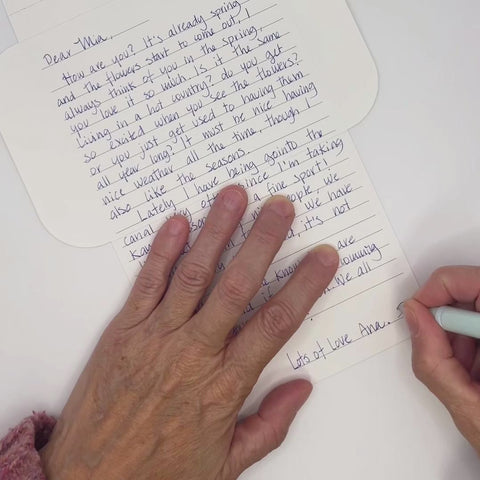 Dear Mia,
How are you? It's already spring
and the flowers start to come out, I
always think of you in the spring,
you love it so much. Is it the same
living in a hot country? do you get
so excited when you see the flowers?
or you just get used to having them
all year long? It must be nice having
nice weather all the time, though I
also like the seasons.
Lately I have being gointo the
canal since I'm taking
Kay a fine sport!
people, we
we have
it's not
are
know
We all
Lots of Love Ana.